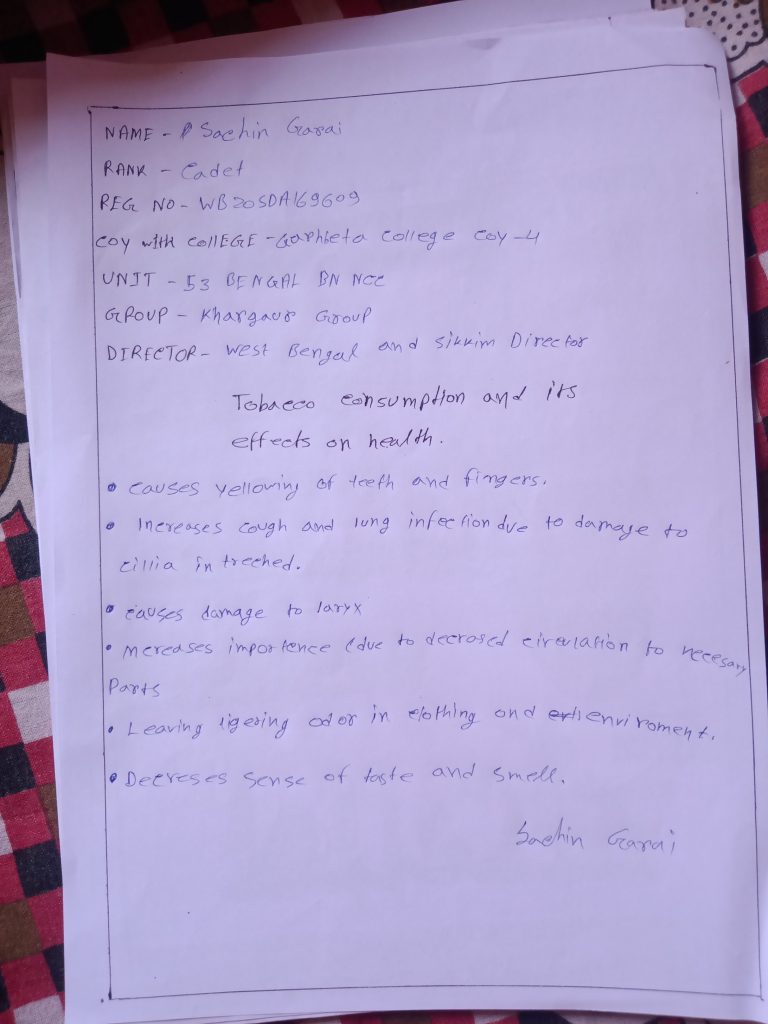 NAME - Sachin Garai
RANK - Cadet
REG NO - WB20SDA169609
COY with COllEGE - Garhbeta College COY-4
UNIT - 53 BENGAL BN NCC
GROUP - Khargaur Group
DIRECTOR - West Bengal and Sikkim Director
Tobacco consumption and its
effects on health.
• causes yelloving of teeth and fingers.
• Increases cough and lung infection due to damage to
cillia in treched.
• causes damage to laryx
• mcreases importence (due to decrosed circulation to necesary
Parts
• Leaving ligering odor in clothing and enviroment.
• Decreses sense of taste and smell.
Sachin Garai